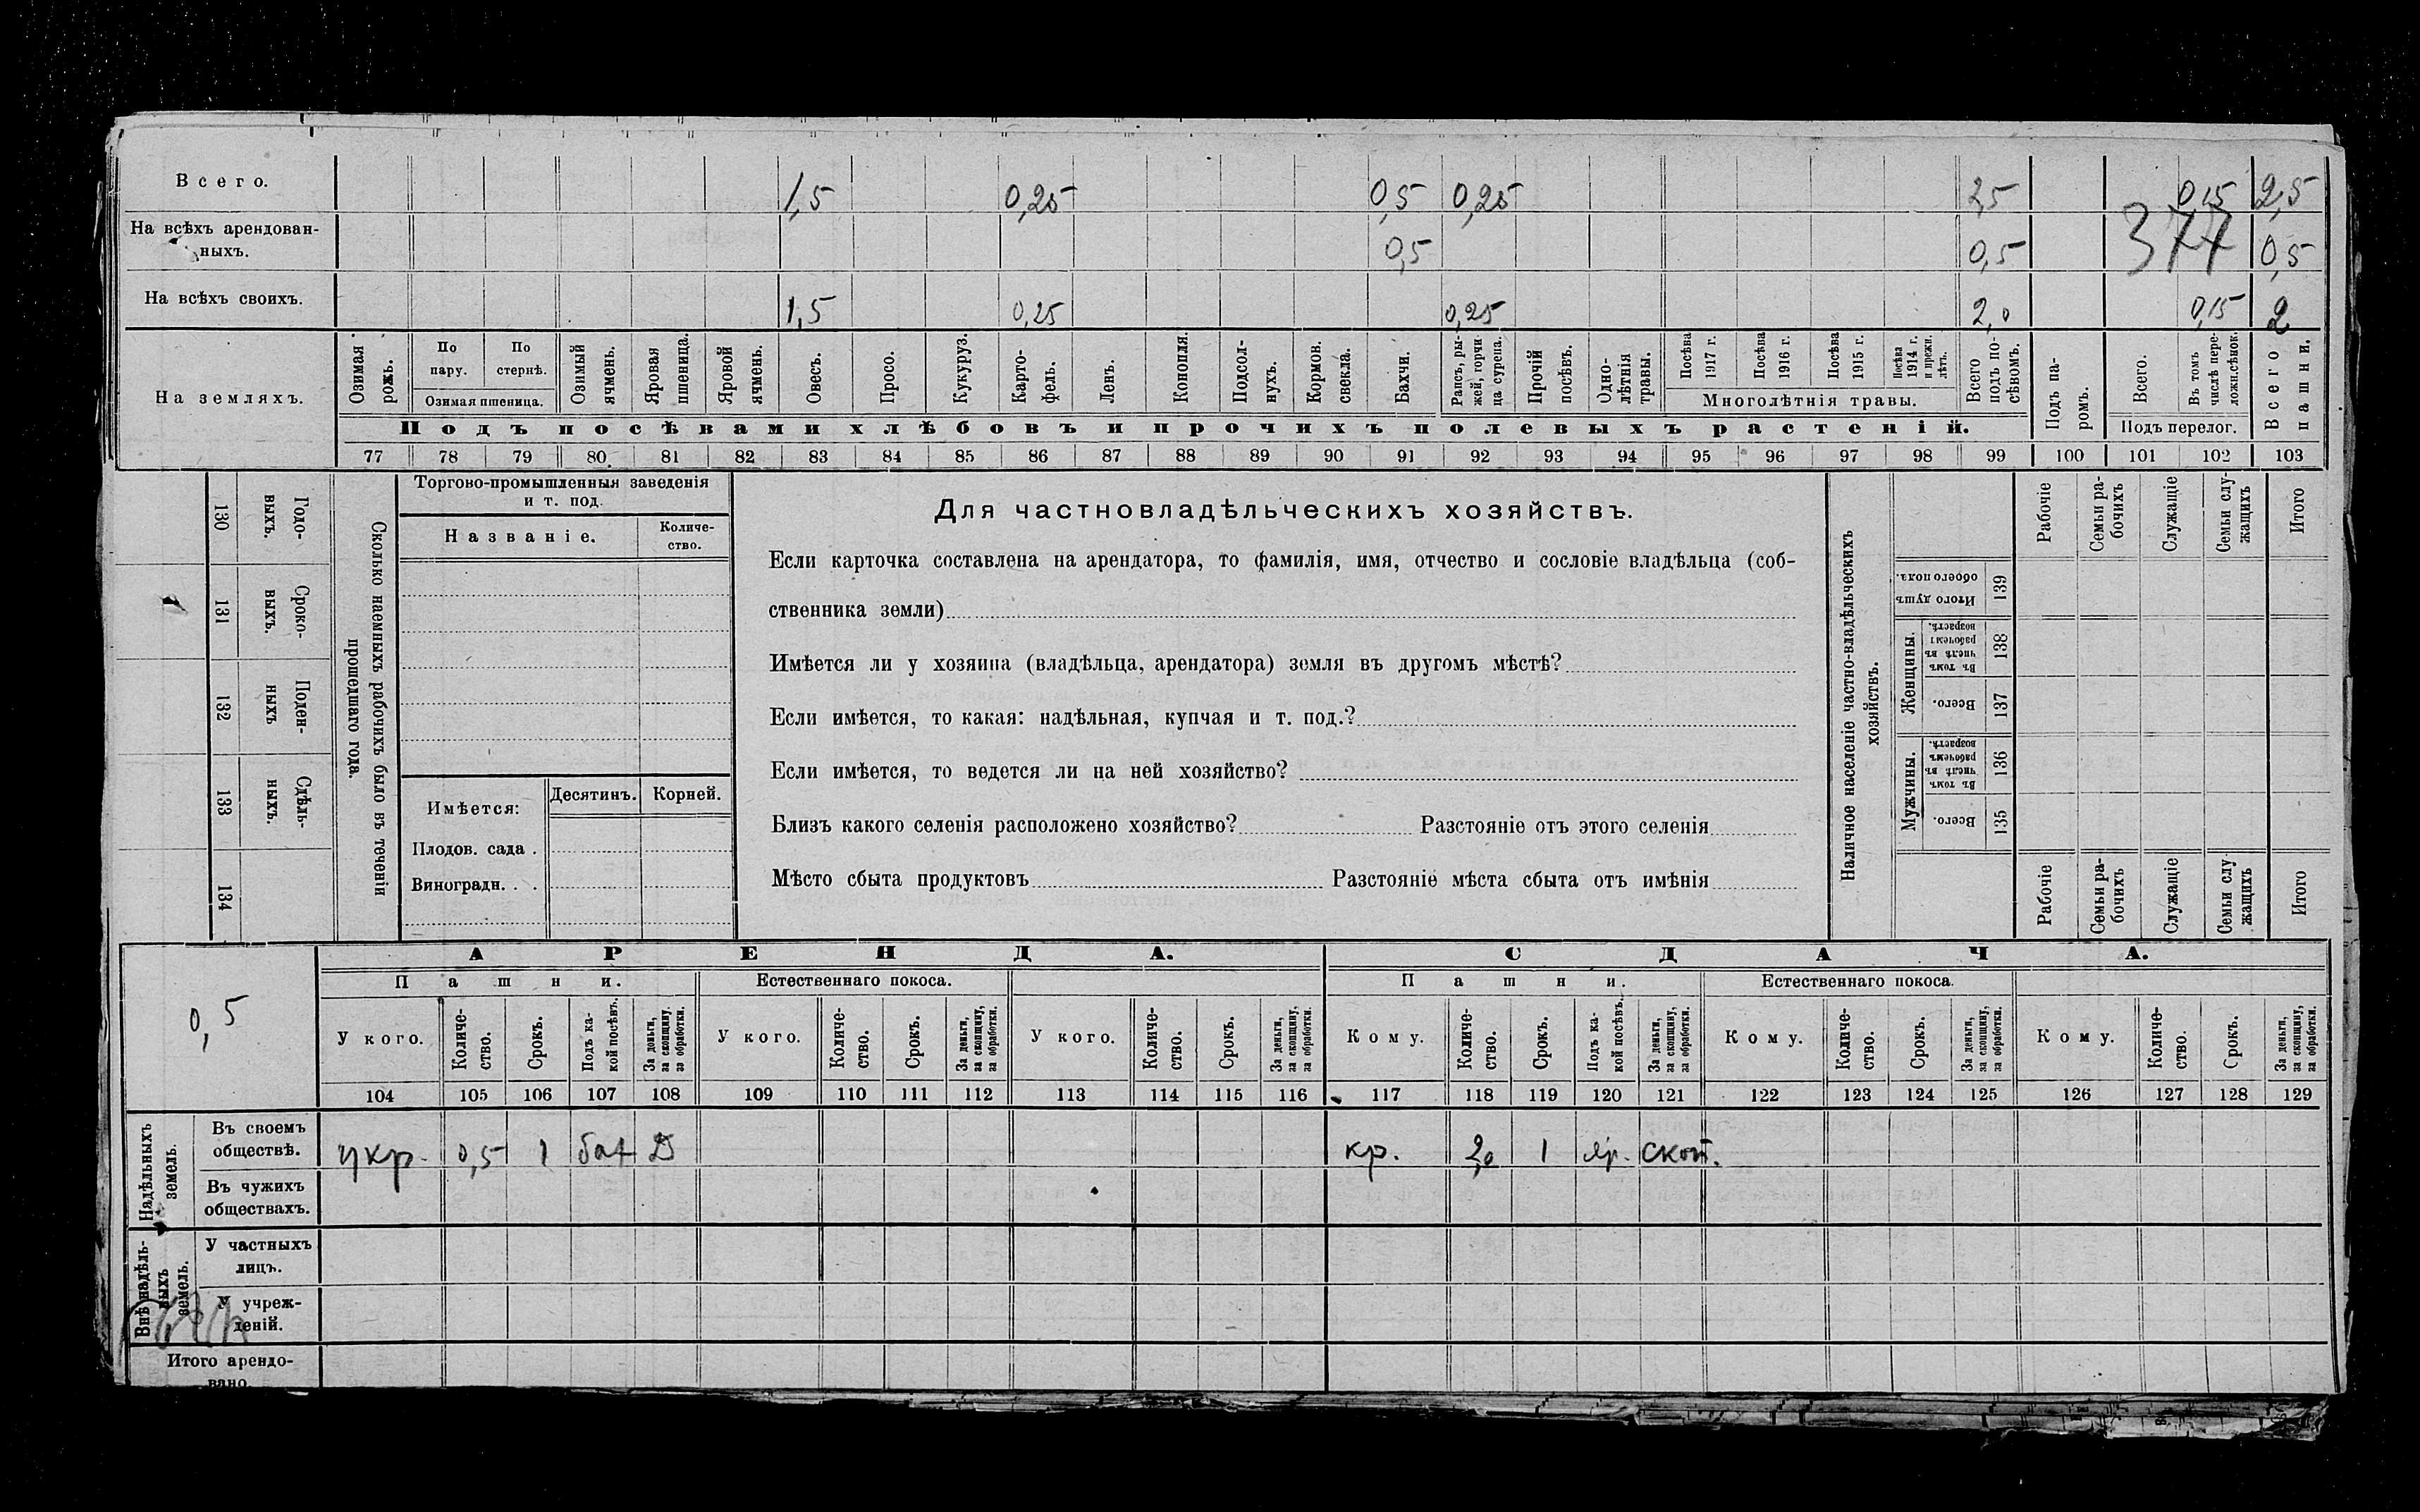 Всего. 1,5 0,25 0,5 0,25 2,5 0,15 2,5
На всѣхъ арендован-
ныхъ. 0,5 0,5 377 0,5
На всѣхъ своихъ. 1,5 0,25 0,25 2,0 0,15 2
На земляхъ.
Озимая рожь.
По пару.
По стернѣ.
Озимая пшеница.
Озимый ячмень.
Яровая пшеница.
Яровой ячмень.
Овесъ.
Просо.
Кукуруз.
Карто-
фель.
Ленъ.
Конопля.
Подсол-
нухъ.
Кормов. свекла.
Бахчи.
Рапсъ, ры-
жей, горчи-
ца сурепа.
Прочій посѣвъ.
Одно-
лѣтнія травы.
Посѣва 1917 г.
Посѣва 1916 г.
Посѣва 1915 г.
Посѣва 1914 г. и прежн. лѣтъ.
Многолѣтнія травы.
Всего подъ по-
сѣвомъ.
Подъ па-
ромъ.
Всего.
Въ томъ числѣ пере-
ложн.сѣнок.
Подъ перелог.
Всего пашни.
Подъ посѣвами хлѣбовъ и прочихъ полевыхъ растеній.
77 78 79 80 81 82 83 84 85 86 87 88 89 90 91 92 93 94 95 96 97 98 99 100 101 102 103
130 Годо-
выхъ.
131 Сроко-
выхъ.
132 Поден-
ныхъ
133 Сдѣль-
ныхъ.
134
Сколько наемныхъ рабочихъ было въ теченіи
прошедшаго года.
Торгово-промышленныя заведенія
и т. под.
Названіе. Количе-
ство.
Имѣется: Десятинъ. Корней.
Плодов. сада .
Виноградн. . .
Для частновладѣльческихъ хозяйствъ.
Если карточка составлена на арендатора, то фамилія, имя, отчество и сословіе владѣльца (соб-
ственника земли)
Имѣется ли у хозяина (владѣльца, арендатора) земля въ другомъ мѣстѣ?
Если имѣется, то какая: надѣльная, купчая и т. под.?
Если имѣется, то ведется ли на ней хозяйство?
Близъ какого селенія расположено хозяйство? Разстояніе отъ этого селенія
Мѣсто сбыта продуктовъ Разстояніе мѣста сбыта отъ имѣнія
Наличное населеніе частно-владѣльческихъ
хозяйствъ.
Рабочіе
Семьи ра-
бочихъ
Служащіе
Семьи слу-
жащихъ
Итого
Итого душъ обоего пола. 139
Женщины.
Въ томъ числѣ въ рабочемъ возрастѣ. 138
Всего. 137
Мужчины.
Въ томъ числѣ въ рабочемъ возрастѣ. 136
Всего. 135
Рабочіе
Семьи ра-
бочихъ
Служащіе
Семьи слу-
жащихъ
Итого
0,5
АРЕНДА. СДАЧА.
Пашни. Естественнаго покоса. Пашни. Естественнаго покоса.
У кого. Количе-
ство. Срокъ. Подъ ка-
кой посѣвъ. За деньги, за скопщину, за обработки.
У кого. Количе-
ство. Срокъ. За деньги, за скопщину, за обработки.
У кого. Количе-
ство. Срокъ. За деньги, за скопщину, за обработки.
Кому. Количе-
ство. Срокъ. Подъ ка-
кой посѣвъ. За деньги, за скопщину, за обработки.
Кому. Количе-
ство. Срокъ. За деньги, за скопщину, за обработки.
Кому. Количе-
ство. Срокъ. За деньги, за скопщину, за обработки.
104 105 106 107 108 109 110 111 112 113 114 115 116 117 118 119 120 121 122 123 124 125 126 127 128 129
Надѣльныхъ земель.
Въ своемъ
обществѣ. у кр. 0,5 1 бах Д кр. 2,0 1 яр. скоп.
Въ чужихъ
обществахъ.
Внѣ надѣль-
ныхъ земель.
У частныхъ
лицъ.
У учреж-
деній.
Итого арендо-
вано